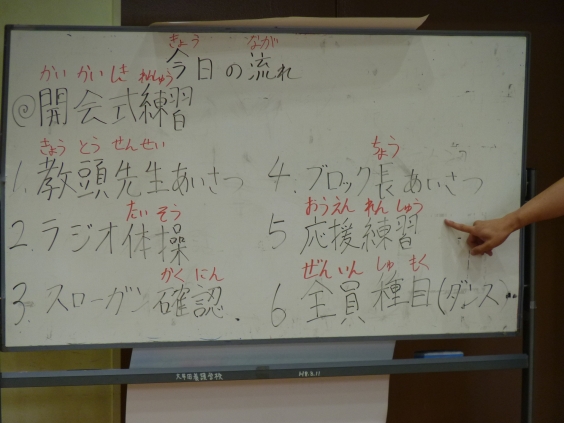 きょう なが
今日の流れ
かい かい しき れんしゅう
◎開会式練習
きょう とう せんせい
1. 教頭先生あいさつ
たい そう
2. ラジオ体操
かく にん
3. スローガン確認
ちょう
4. ブロック長あいさつ
おうえん れん しゅう
5 応援練習
ぜんいん しゅ もく
6. 全員種目(ダンス)